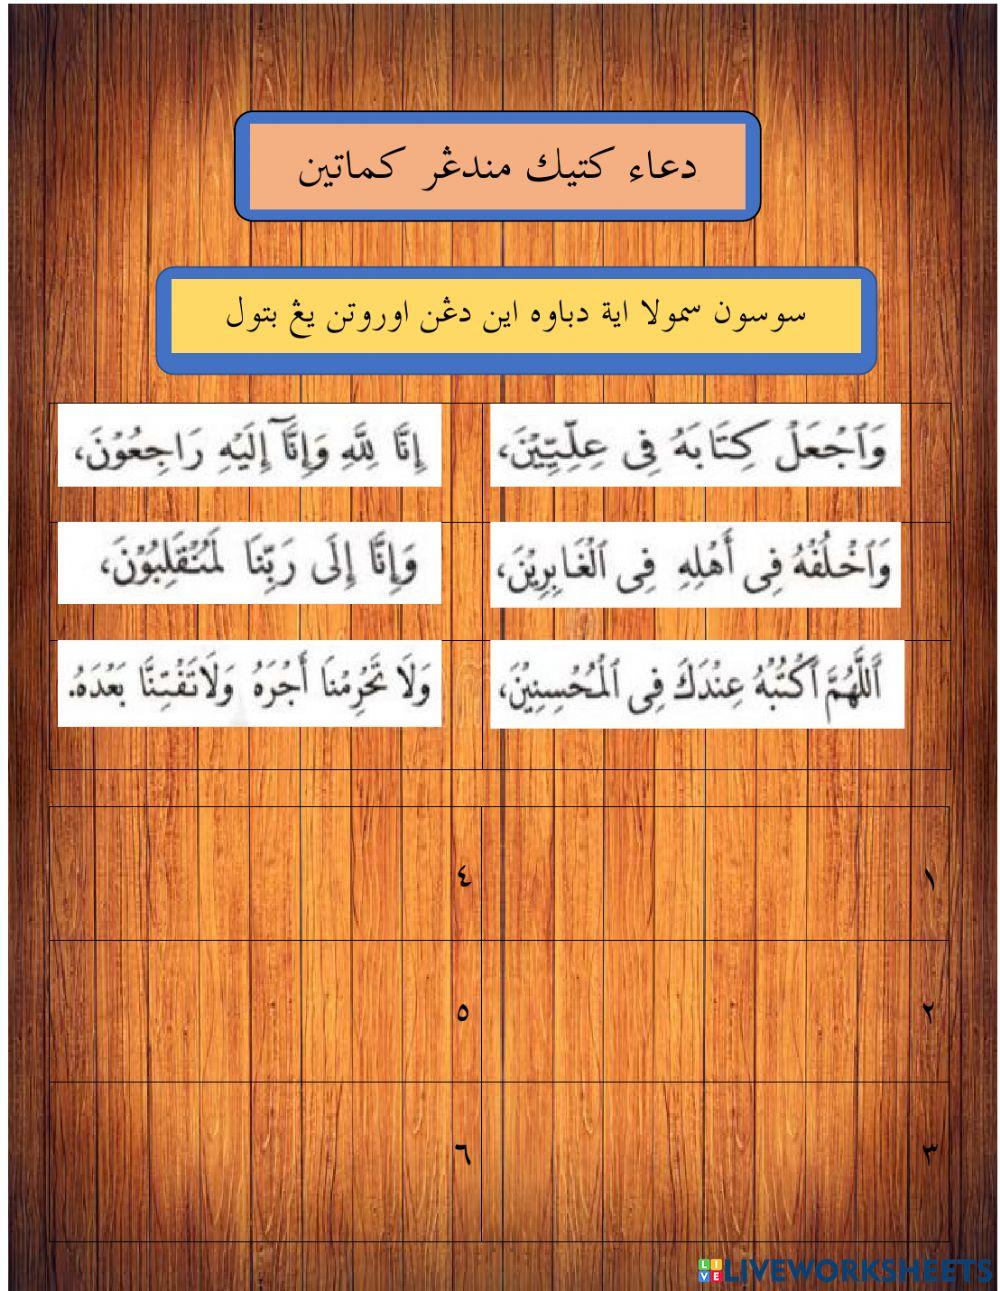 دعاء كتيك مندڠر كماتين
سوسون سمولا اية دباوه اين دڠن اوروتن يڠ بتول
وَٱجْعَلْ كِتَابَهُ فِى عِلِّيِّيْنَ،
إِنَّا لِلَّهِ وَإِنَّآ إِلَيْهِ رَاجِعُوْنَ،
وَٱخْلُفْهُ فِى أَهْلِهِ فِى ٱلْغَابِرِيْنَ،
وَإِنَّا إِلَى رَبِّنَا لَمُنْقَلِبُوْنَ،
أَللَّهُمَّ ٱكْتُبْهُ عِنْدَكَ فِى ٱلْمُحْسِنِيْنَ،
وَلَا تَحْرِمْنَا أَجْرَهُ وَلَاتَفْتِنَّا بَعْدَهُ.
١
٤
٢
٥
٣
٦
LIVEWORKSHEETS